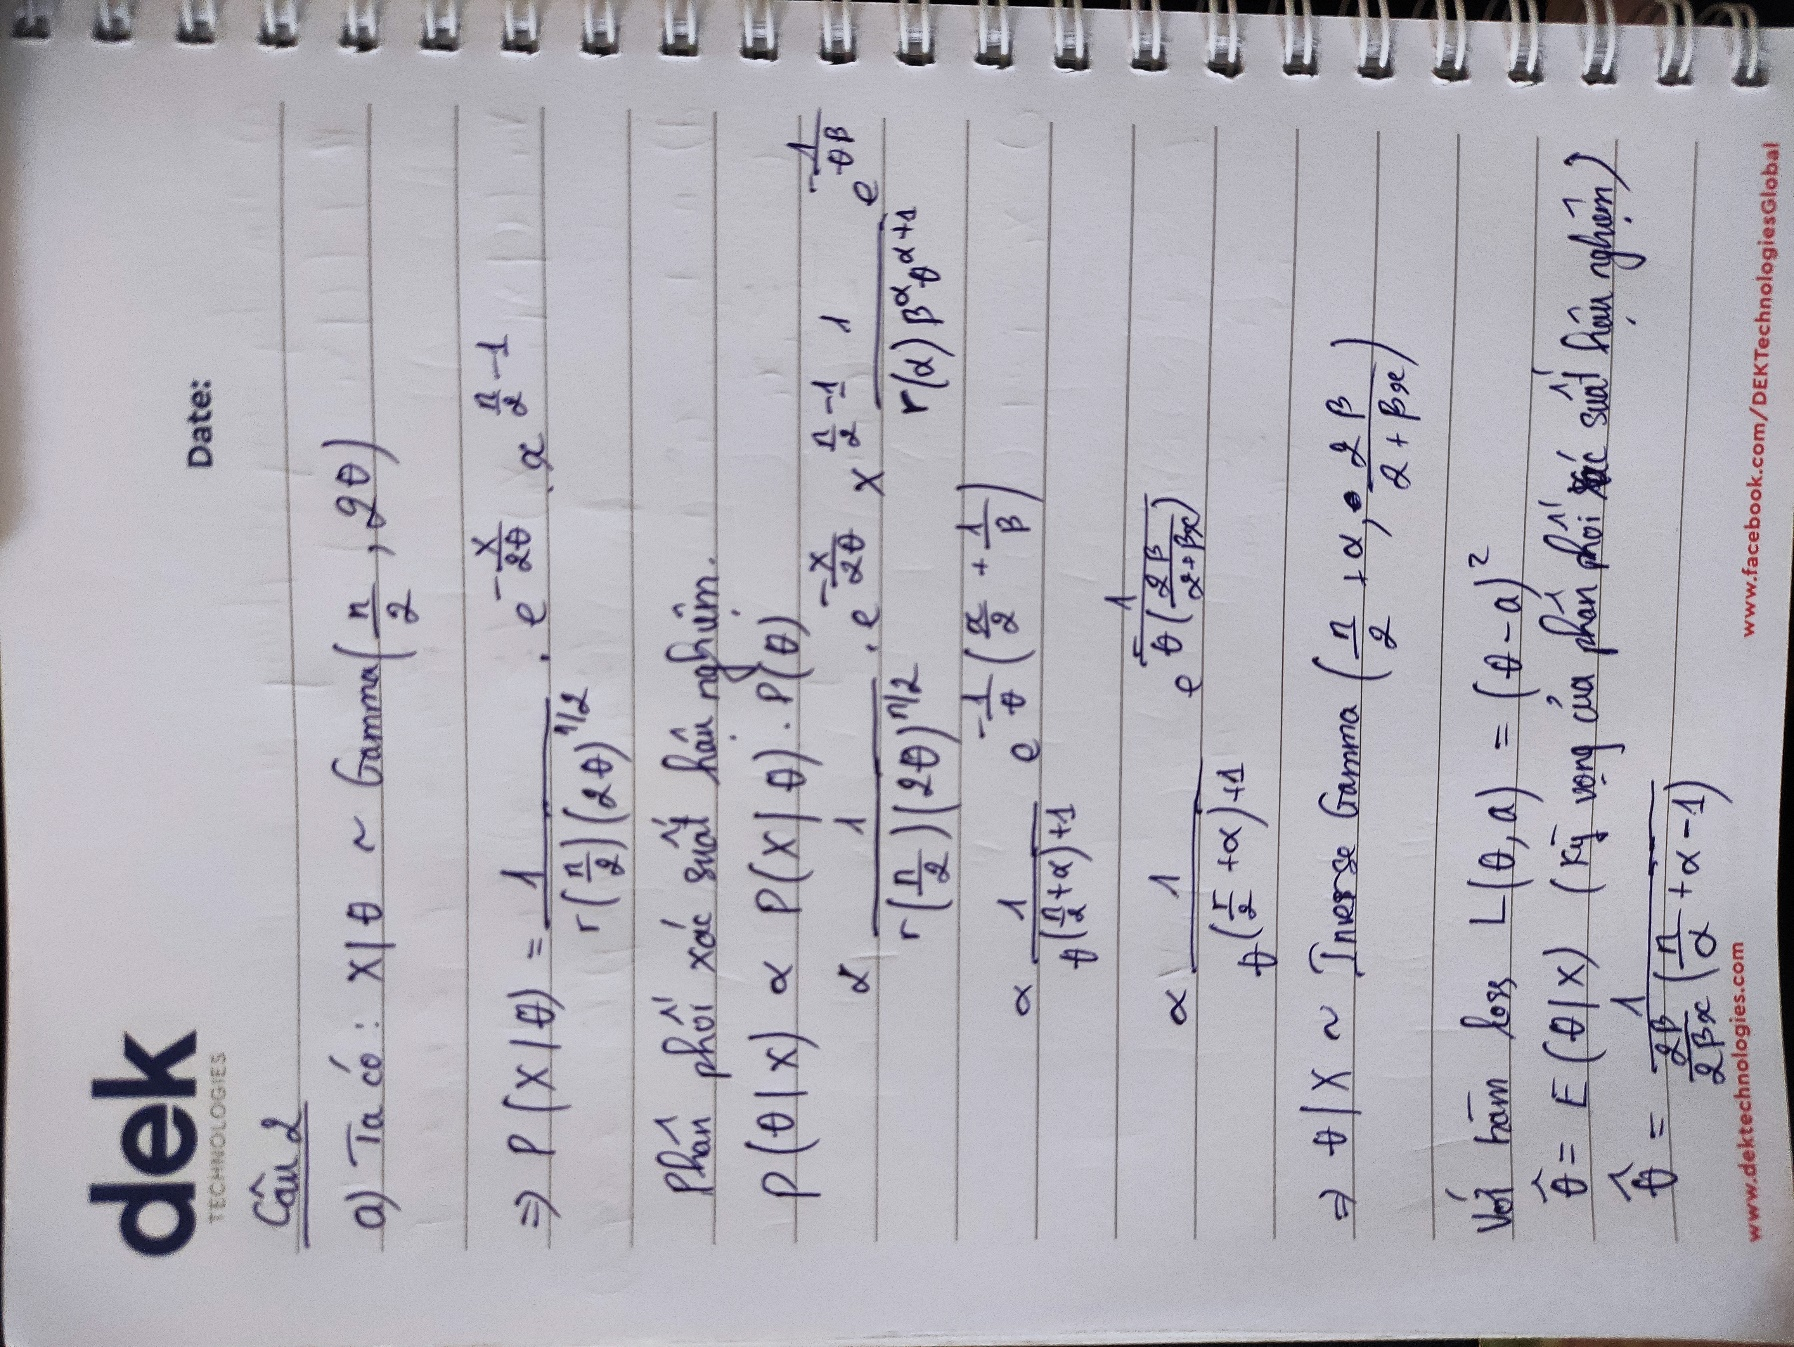 dek
TECHNOLOGIES
Date:
Câu 2
a) Ta có : X|θ ~ Gamma(n/2, 2θ)
⇒ P(X|θ) = 1/(Γ(n/2)(2θ)^{n/2}) . e^{-x/2θ} . x^{n/2 - 1}
Phân phối xác suất hậu nghiệm.
P(θ|X) ∝ P(X|θ) . P(θ)
∝ 1/(Γ(n/2)(2θ)^{n/2}) . e^{-x/2θ} x^{n/2 - 1} 1/(Γ(α) β^α θ^{α+1}) e^{-1/θβ}
∝ 1/θ^{(n/2+α)+1} e^{-1/θ (x/2 + 1/β)}
∝ 1/θ^{(n/2+α)+1} e^{-1/(θ(2β/(2+βx)))}
⇒ θ|X ~ Inverse Gamma (n/2 + α, 2β/(2+βx))
Với hàm loss L(θ,a) = (θ-a)²
θ̂ = E(θ|X) (kỳ vọng của phân phối xác suất hậu nghiệm)
θ̂ = 1/(2β/2βx (n/α + α - 1))
www.dektechnologies.com www.facebook.com/DEKTechnologiesGlobal